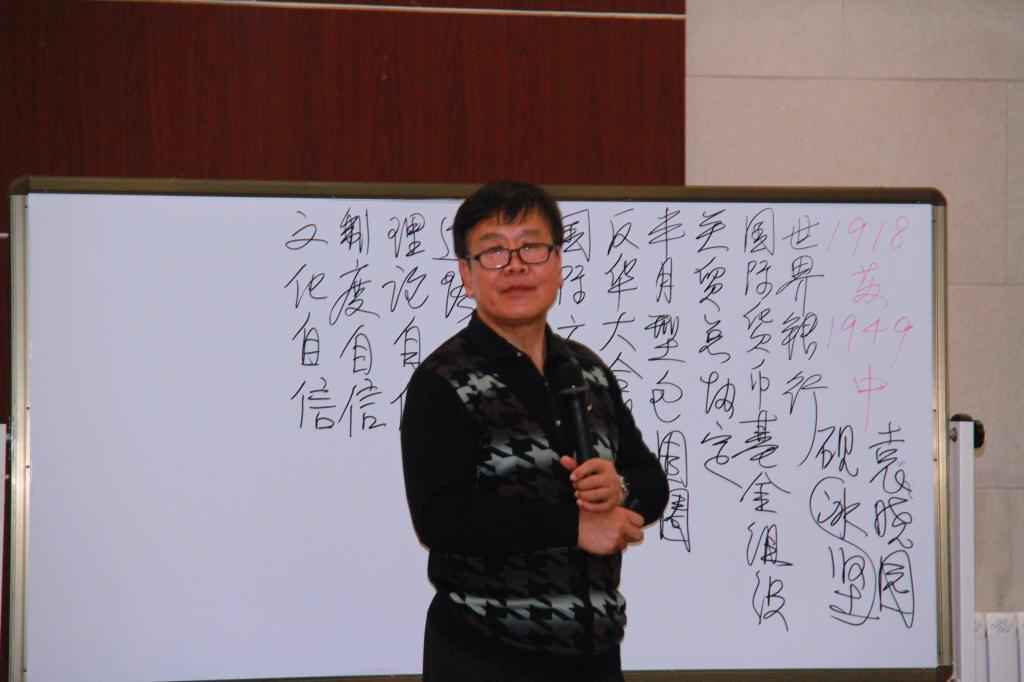 1918
苏
1949
中
袁晓园
砚冰坚
世界银行
国际货币基金组织
关贸总协定
半月型包围圈
反华大合
国际
理论自信
制度自信
文化自信